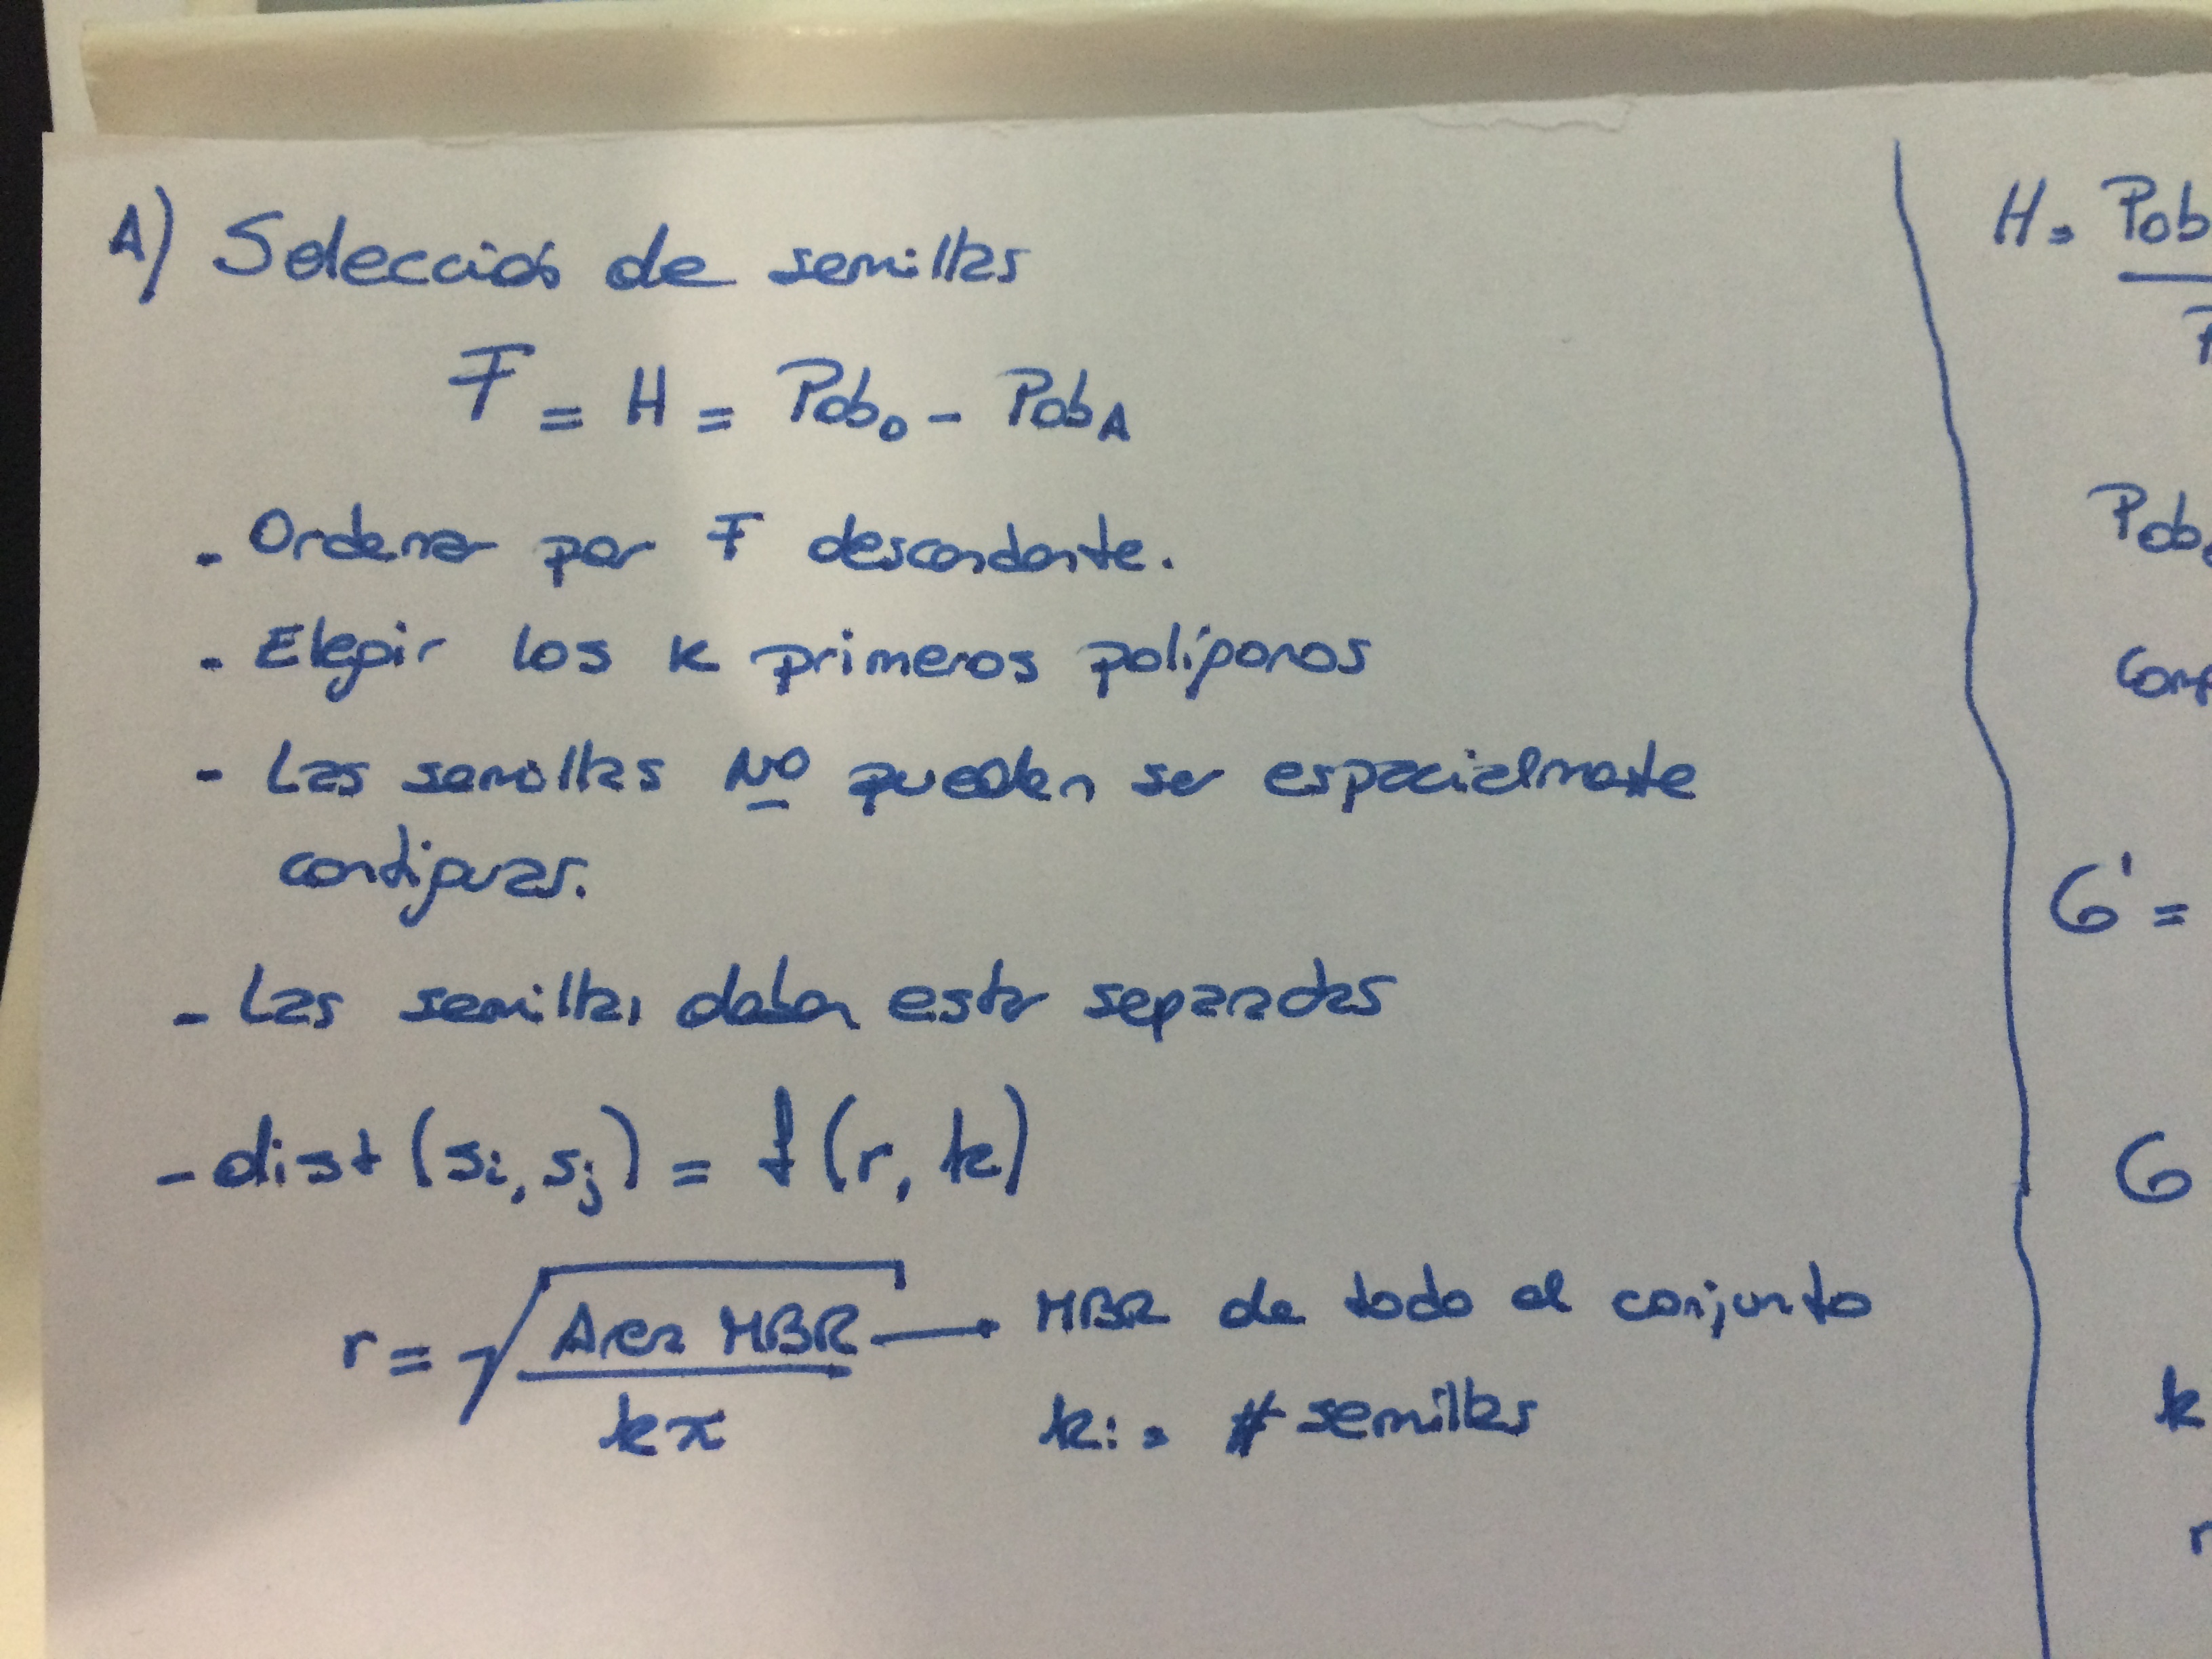 A) Selección de semillas
F = H = Pob₀ - Pob_A
- Ordenar por F descendente.
- Elegir los k primeros polígonos
- Las semillas No pueden ser espacialmente
contiguas.
- Las semillas deben estar separadas
- dist (si, sj) = f (r, k)
r = √(Area MBR / kπ) → MBR de todo el conjunto
k: = # semillas
H = Pob
Pob
Con
G' =
G
k